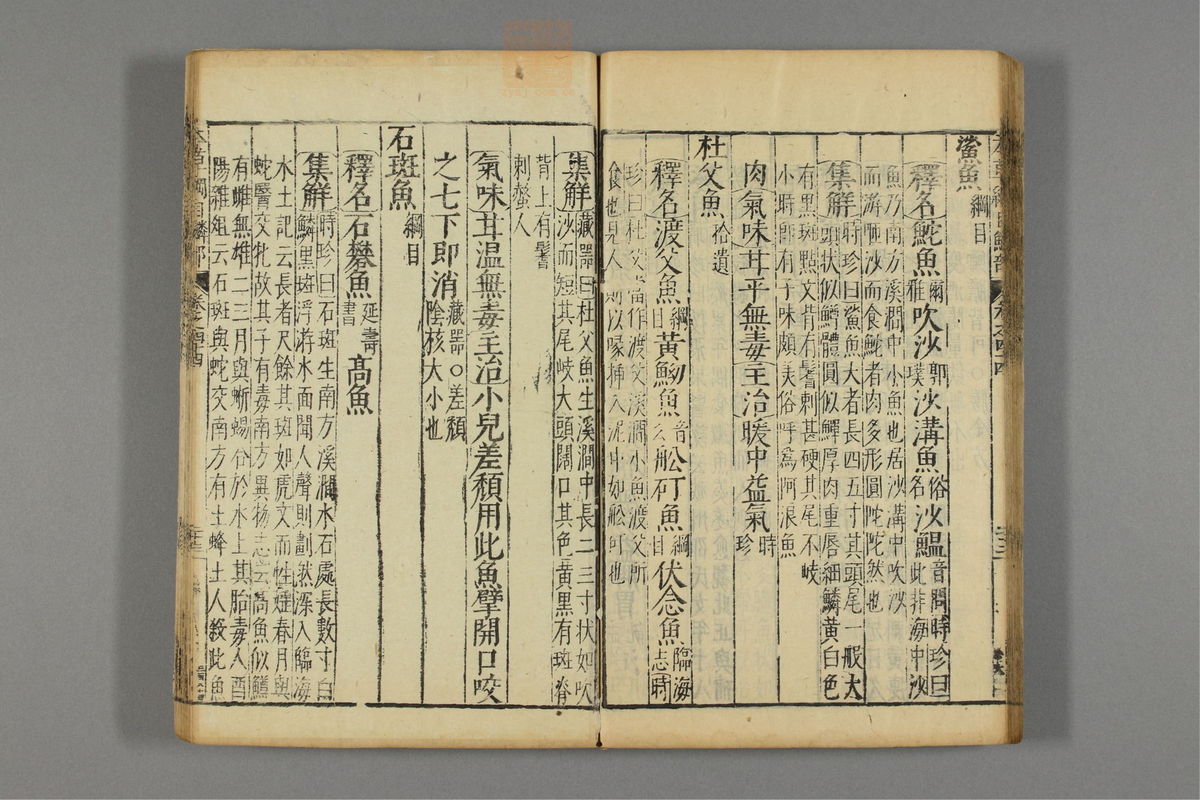 鯊魚 綱目
釋名鮀魚爾雅吹沙郭璞沙溝魚俗名沙鰛音問時珍曰此非海中沙
魚乃南方溪澗中小魚也居沙溝中吹沙
而游咂沙而食鮀者肉多形圓陀陀然也
集解時珍曰鯊魚大者長四五寸其頭尾一般大頭狀似鱒體圓似鱓厚肉重唇細鱗黃白色
有黑斑點文背有鬐刺甚硬其尾不岐
小時即有子味頗美俗呼為阿浪魚
肉氣味甘平無毒主治暖中益氣時珍
杜父魚 拾遺
釋名渡父魚綱目黃䱂魚音么舩矴魚綱目伏念魚臨海志時
珍曰杜父當作渡父溪澗小魚渡父所
食也見人則以喙插入泥中如舩矴也
集解藏器曰杜父魚生溪澗中長二三寸狀如吹沙而短其尾岐大頭闊口其色黃黑有斑脊
背上有鬐
刺螫人
氣味甘溫無毒主治小兒差頹用此魚擘開口咬
之七下即消藏器○差頹陰核大小也
石斑魚 綱目
釋名石礬魚延壽書高魚
集解時珍曰石斑生南方溪澗水石處長數寸白鱗黑斑浮游水面聞人聲則劃然深入臨海
水土記云長者尺餘其斑如虎文而性婬春月與
蛇醫交牝故其子有毒南方異物志云高魚似鱒
有雌無雄二三月與蜥蜴合於水上其胎毒人酉
陽雜俎云石斑與蛇交南方有土蜂土人殺此魚